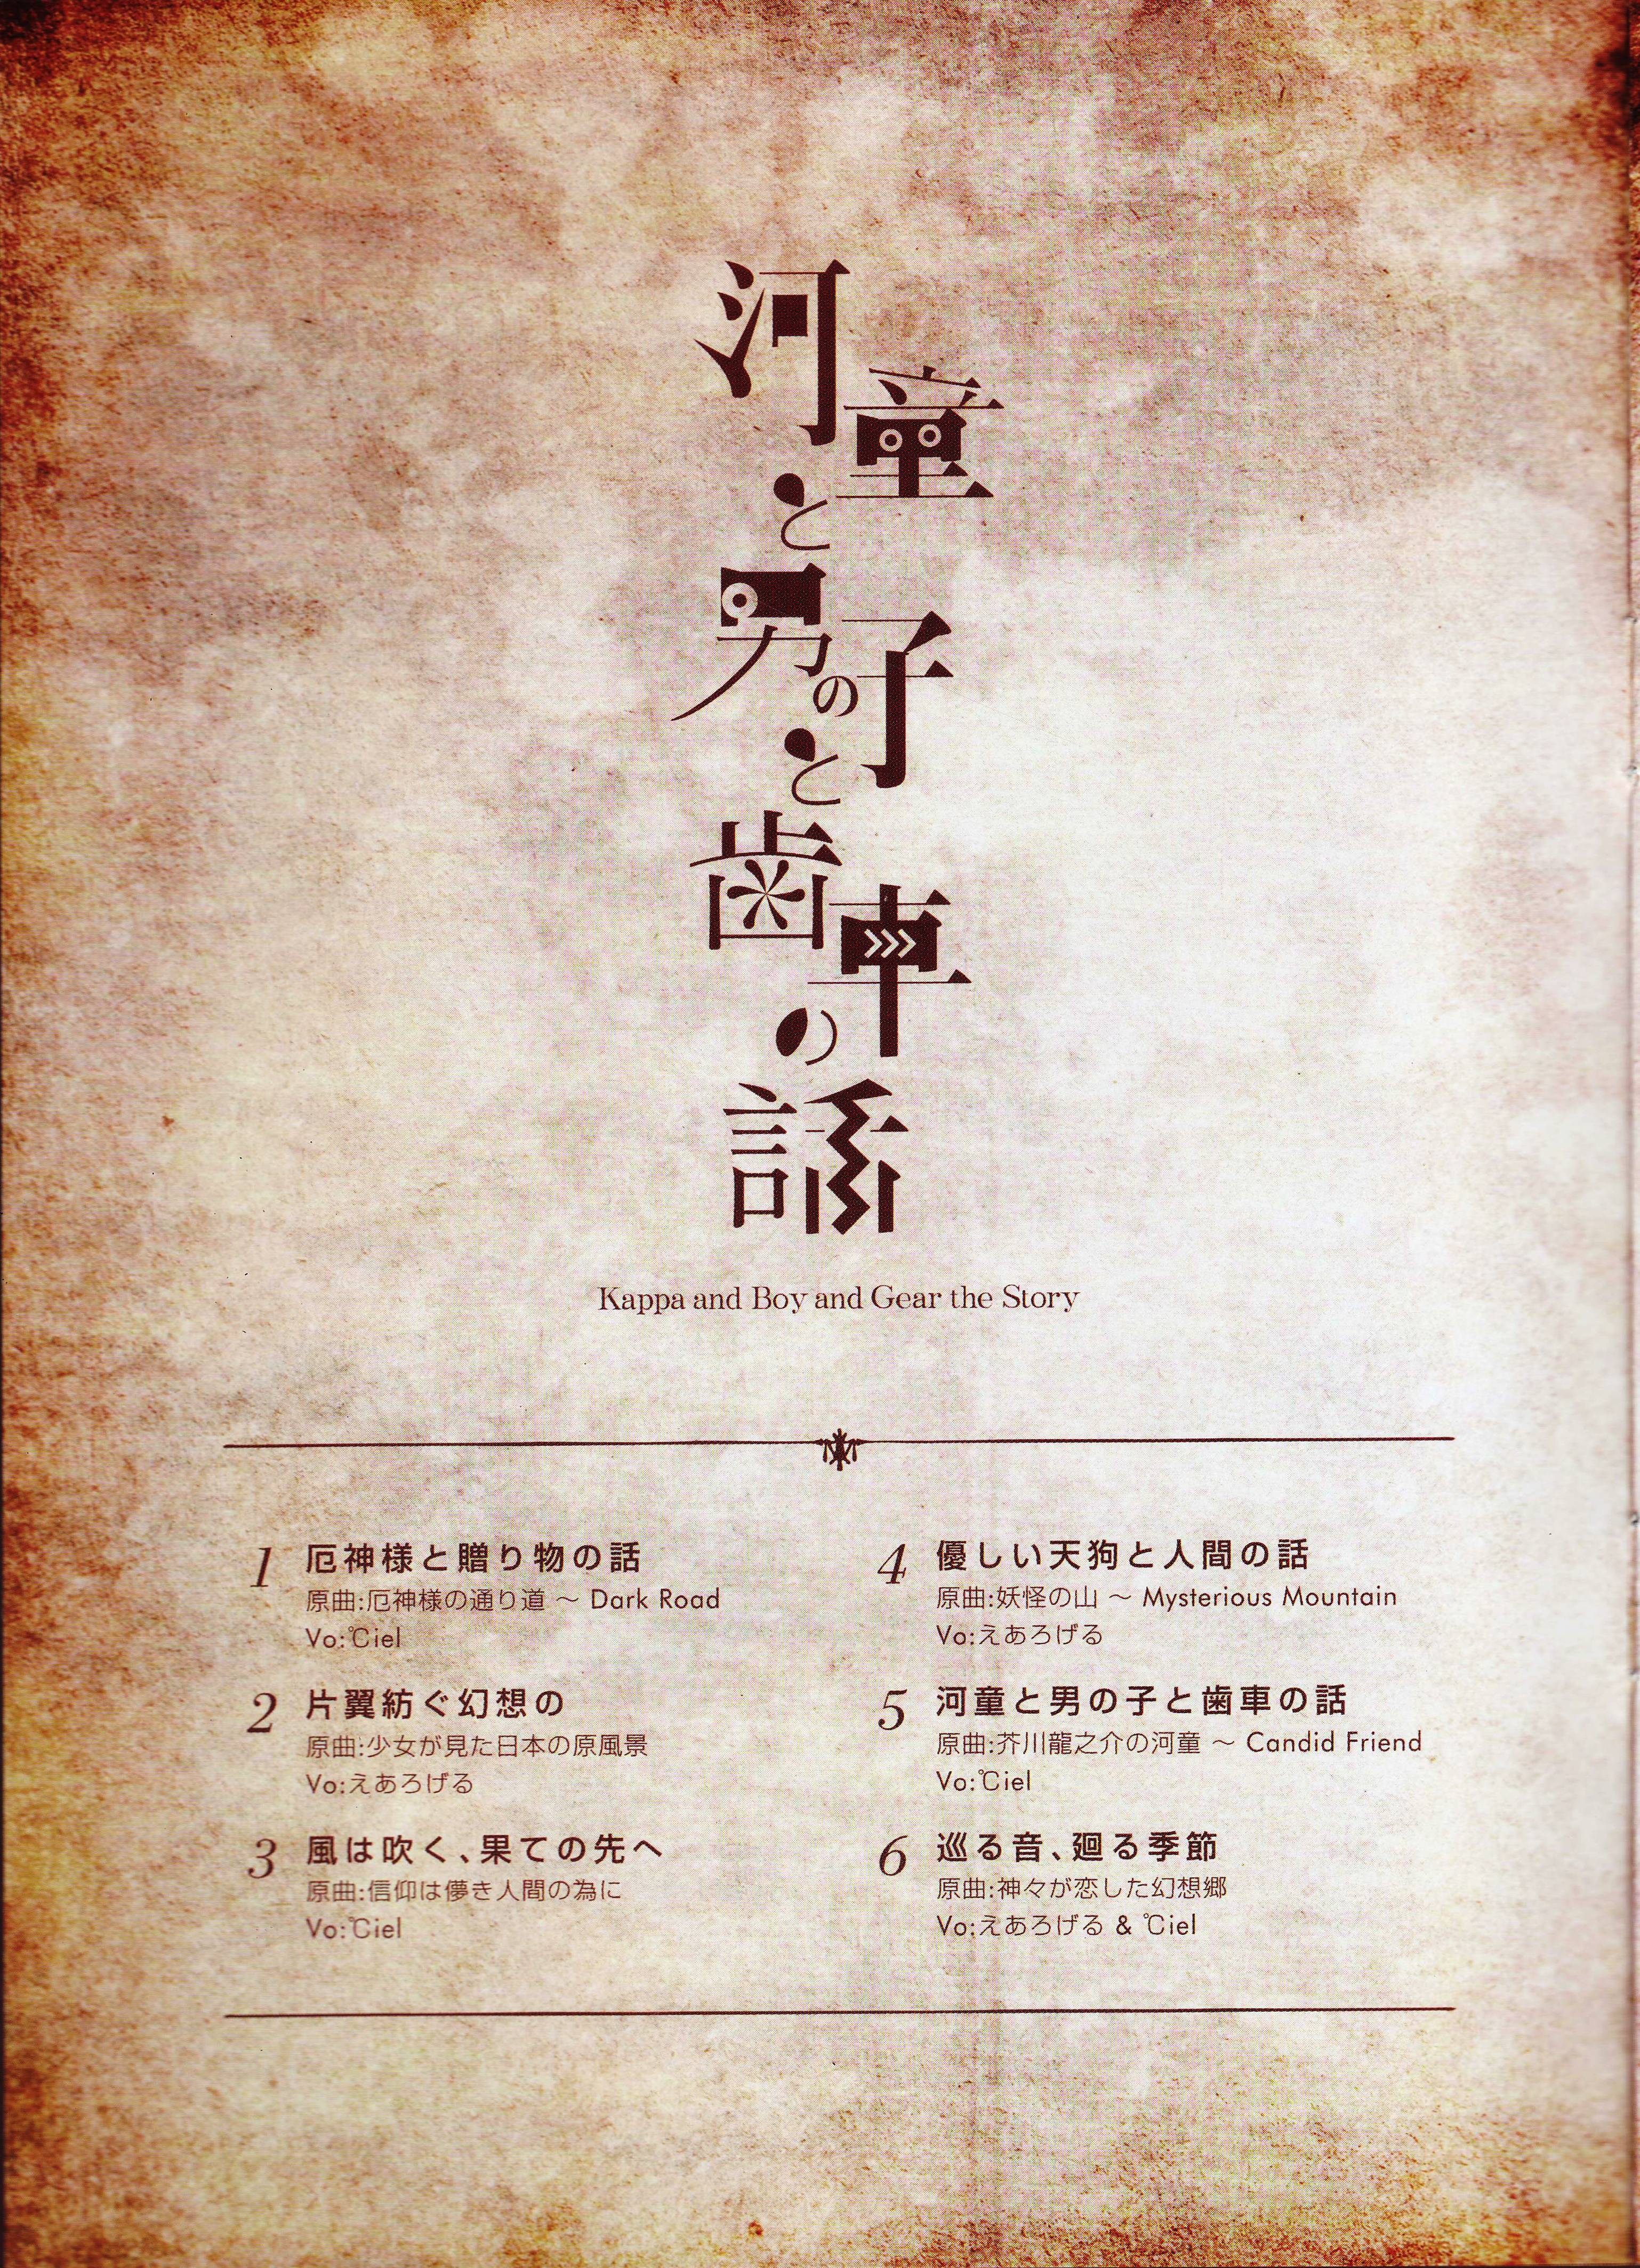 河童と男の子と歯車の話
Kappa and Boy and Gear the Story
1 厄神様と贈り物の話
原曲:厄神様の通り道 ～ Dark Road
Vo:℃iel
2 片翼紡ぐ幻想の
原曲:少女が見た日本の原風景
Vo:えあろげる
3 風は吹く、果ての先へ
原曲:信仰は儚き人間の為に
Vo:℃iel
4 優しい天狗と人間の話
原曲:妖怪の山 ～ Mysterious Mountain
Vo:えあろげる
5 河童と男の子と歯車の話
原曲:芥川龍之介の河童 ～ Candid Friend
Vo:℃iel
6 巡る音、廻る季節
原曲:神々が恋した幻想郷
Vo:えあろげる & ℃iel